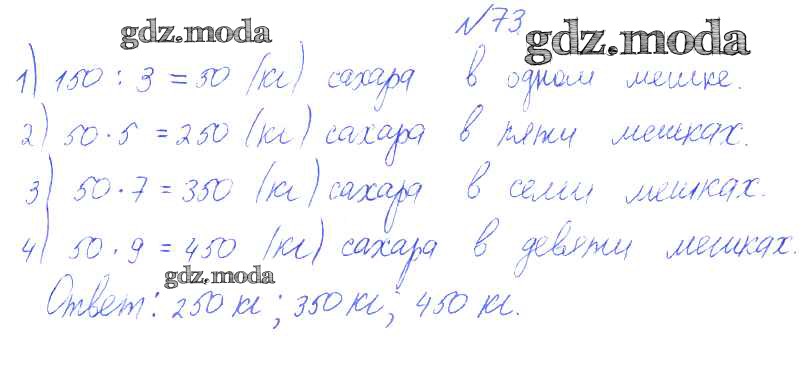 №73
gdz.moda gdz.moda
1) 150 : 3 = 50 (кг) сахара в одном мешке.
2) 50 · 5 = 250 (кг) сахара в пяти мешках.
3) 50 · 7 = 350 (кг) сахара в семи мешках.
4) 50 · 9 = 450 (кг) сахара в девяти мешках.
gdz.moda
Ответ: 250 кг; 350 кг; 450 кг.